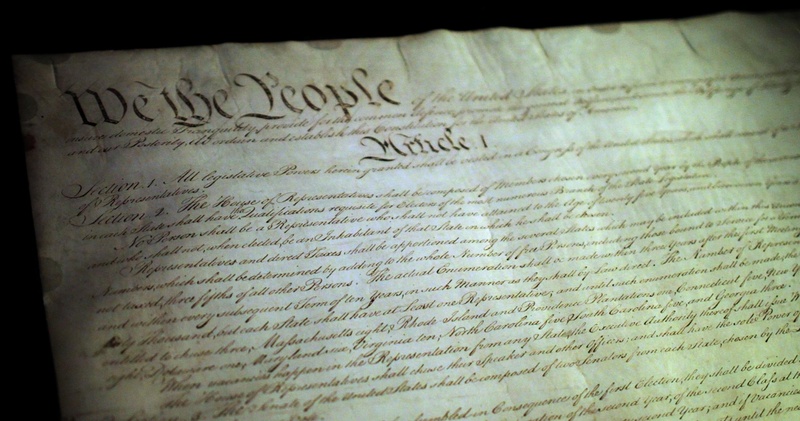 We the People of the United States,
insure domestic Tranquility, provide for the common
and our Posterity, do ordain and establish this Constitution for the United States of America.
Article I
Section. 1. All legislative Powers herein granted shall be vested in a Congress of the United States
of Representatives.
Section. 2. The House of Representatives shall be composed of Members chosen every second Year by the People of the several
in each State shall have Qualifications requisite for Electors of the most numerous Branch of the State Legislature.
No Person shall be a Representative who shall not have attained to the Age of twenty five Years, and been seven Years a
and who shall not, when elected, be an Inhabitant of that State in which he shall be chosen.
Representatives and direct Taxes shall be apportioned among the several States which may be included within this Union
Numbers, which shall be determined by adding to the whole Number of free Persons, including those bound to Service for a
not taxed, three fifths of all other Persons. The actual Enumeration shall be made within three Years after the first Meeting
and within every subsequent Term of ten Years, in such Manner as they shall by Law direct. The Number of Represent
thirty Thousand, but each State shall have at Least one Representative; and until such enumeration shall be made, the
entitled to chuse three, Massachusetts eight, Rhode Island and Providence Plantations one, Connecticut five, New York
eight, Delaware one, Maryland six, Virginia ten, North Carolina five, South Carolina five, and Georgia three.
When vacancies happen in the Representation from any State, the Executive Authority thereof shall issue
The House of Representatives shall chuse their Speaker and other Officers; and shall have the sole Power of
The Senate of the United States shall be composed of two Senators from each State, chosen by the
assembled in Consequence of the first Election, they shall be divided
of the second Year, of the second Class at the
second Year; and if Vacancies
until the